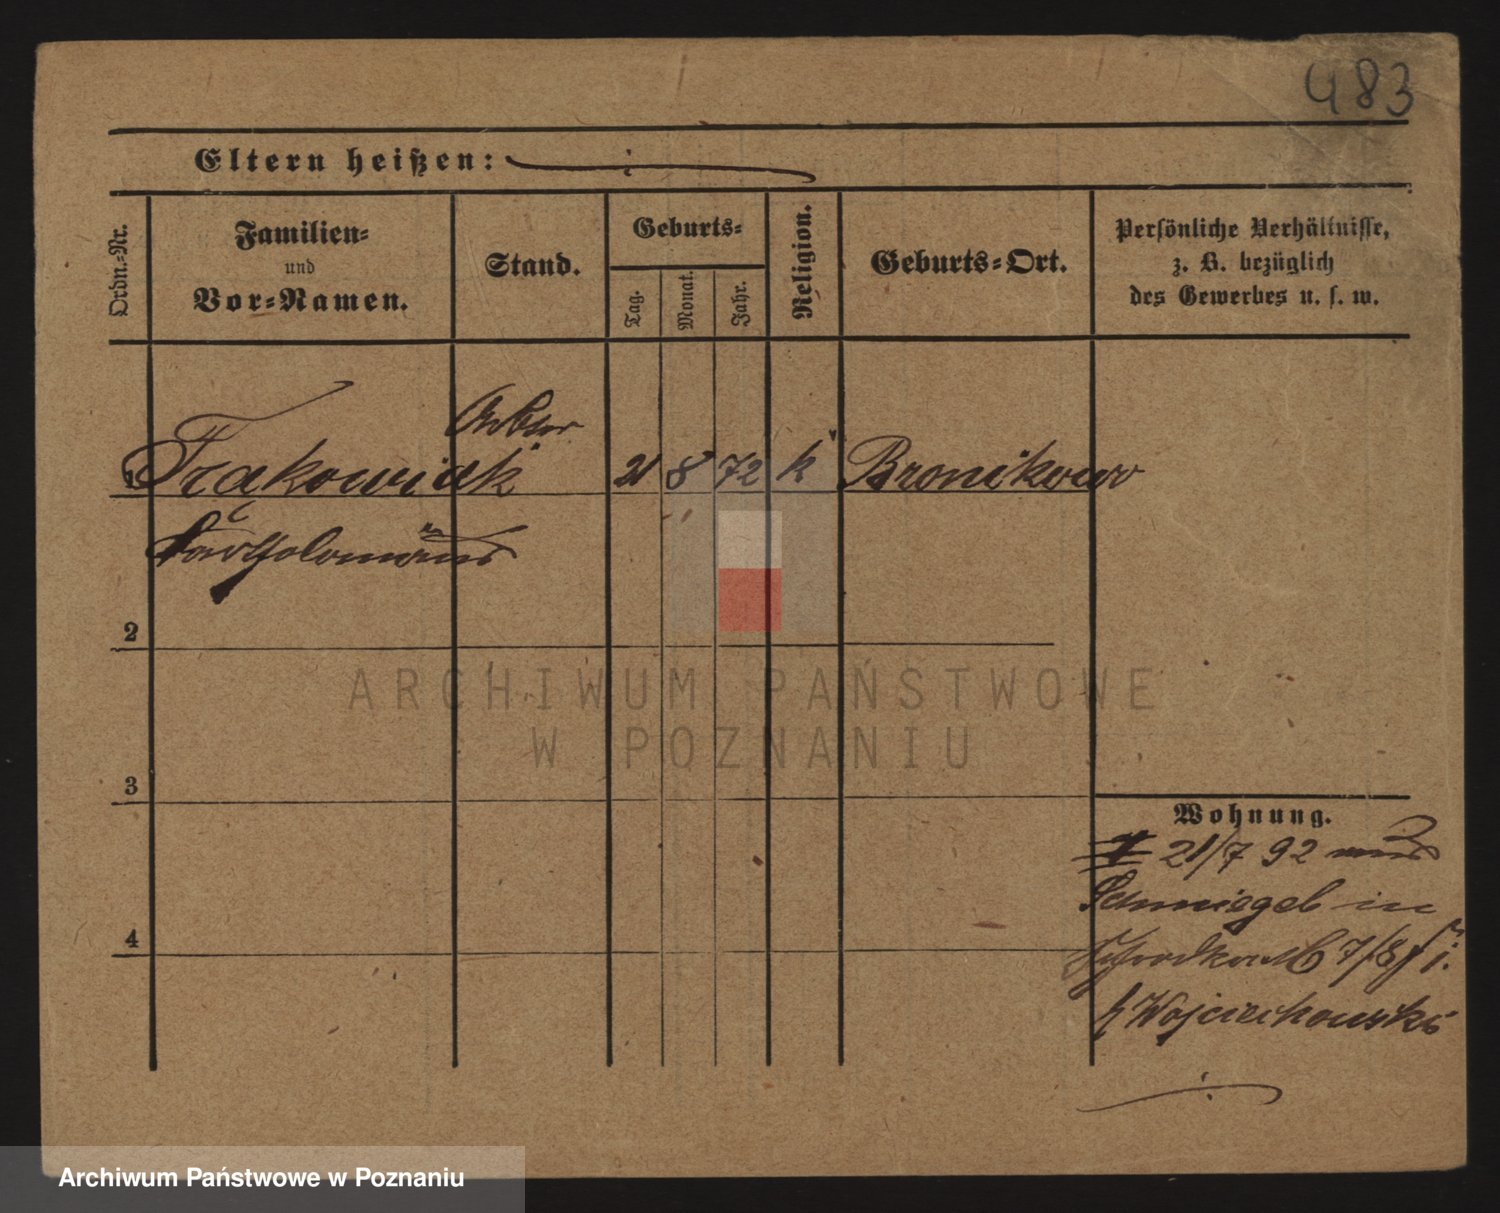 483
Eltern heißen:
Ordn.-Nr.
Familien-
und
Vor-Namen.
Stand.
Geburts-
Tag.
Monat.
Jahr.
Religion.
Geburts-Ort.
Persönliche Verhältnisse,
z. B. bezüglich
des Gewerbes u. s. w.
1 Frąkowiak 21 8 72 k Bronikowo
Bartholomäus
2
ARCHIWUM PAŃSTWOWE
W POZNANIU
3
Wohnung.
21/7 92
Schmiegel in
4
7/8
Wojciechowski
Archiwum Państwowe w Poznaniu